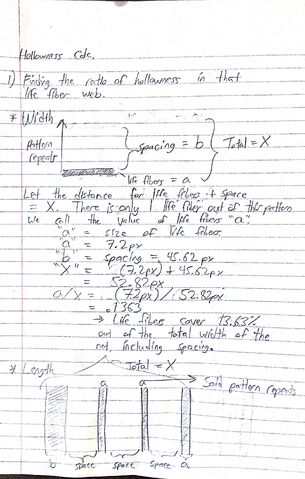 Hollowness Calc.
1) Finding the ratio of hollowness in that
life fiber web.
* Width
Pattern
repeats
spacing = b
Total = X
life fibers = a
Let the distance for life fibers + space
= X. There is only 1 life fiber out of this pattern
We call the value of life fibers "a"
"a" = size of life fibers
"a" = 7.2px
"b" = spacing = 45.62px
"X" = (7.2px) + 45.62px
= 52.82px
a/X = (7.2px) / 52.82px
= .1363
→ Life fibers cover 13.63%
out of the total width of the
net, including spacing.
* Length
Total = X
Said pattern repeats
a a
b space space space a